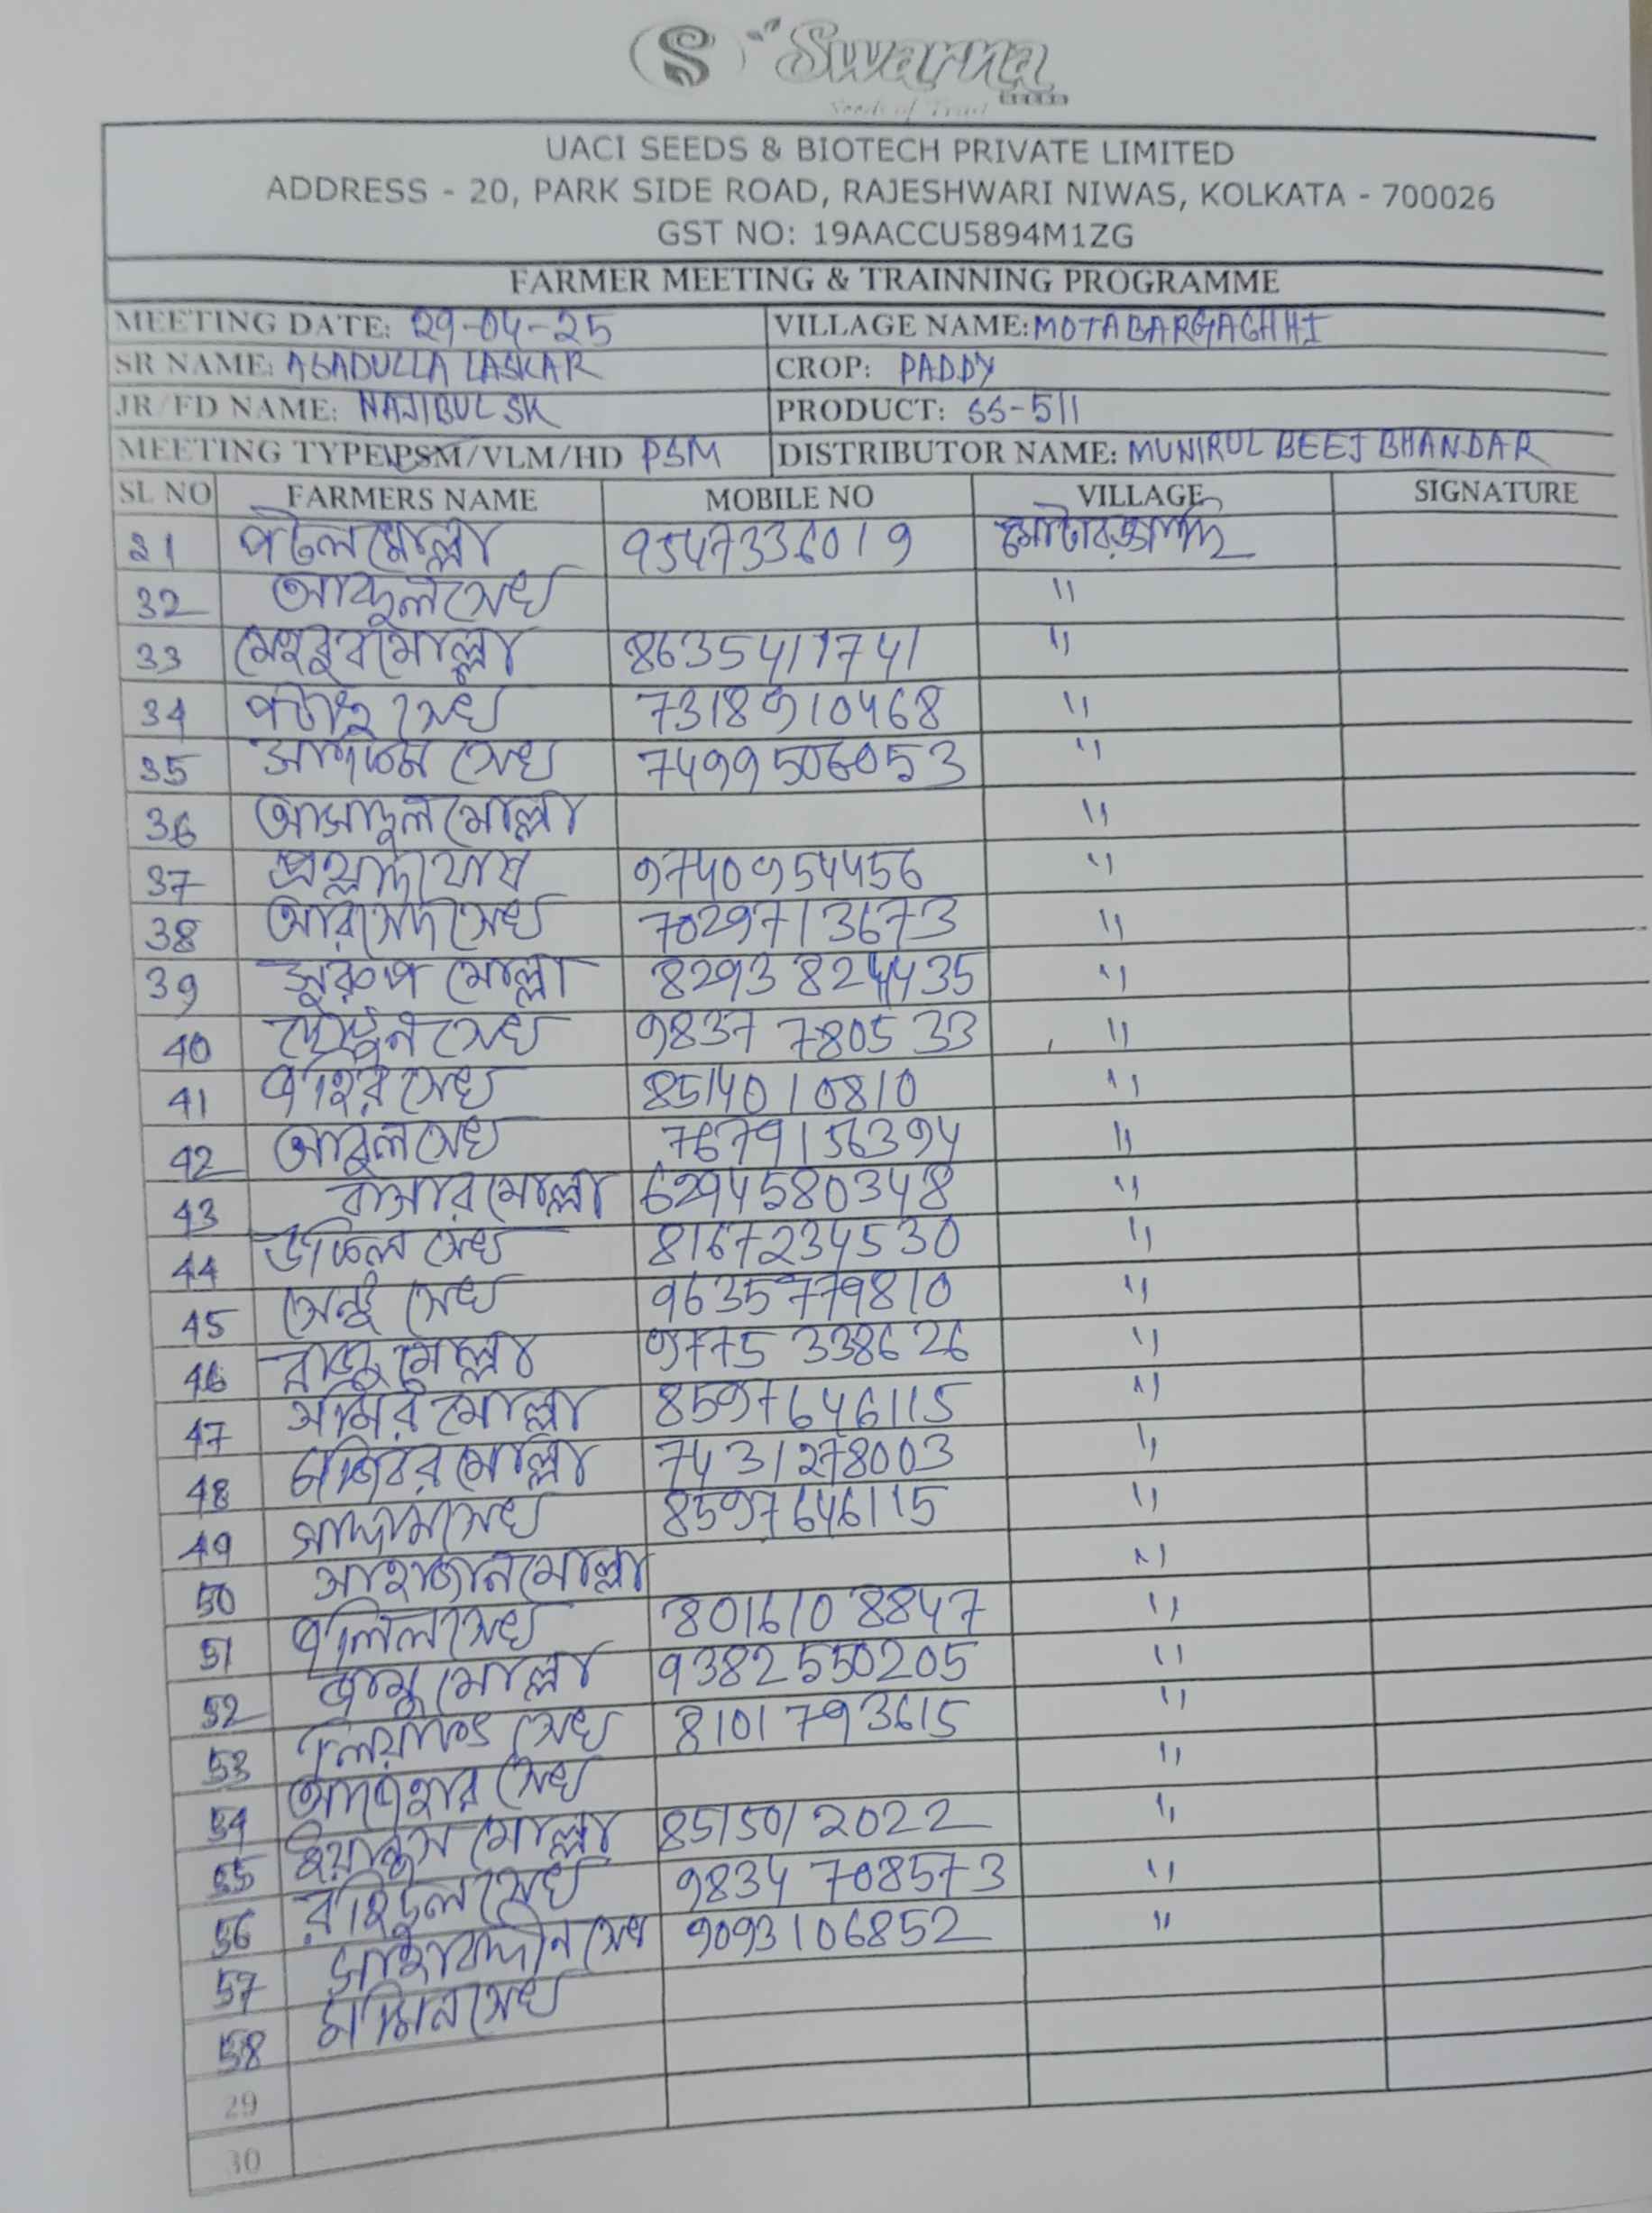 S Swarna
SEEDS
Seeds of Trust
UACI SEEDS & BIOTECH PRIVATE LIMITED
ADDRESS - 20, PARK SIDE ROAD, RAJESHWARI NIWAS, KOLKATA - 700026
GST NO: 19AACCU5894M1ZG
FARMER MEETING & TRAINNING PROGRAMME
MEETING DATE: 29-04-25 VILLAGE NAME: MOTABARGACHHI
SR NAME: ASADULLA LASKAR CROP: PADDY
JR/FD NAME: NAJIBUL SK PRODUCT: SS-511
MEETING TYPE\PSM/VLM/HD PSM DISTRIBUTOR NAME: MUNIRUL BEEJ BHANDAR
SL NO FARMERS NAME MOBILE NO VILLAGE SIGNATURE
21 পটল মোল্লা 9547336019
32 আকুল সেখ "
33 মেহবুব মোল্লা 8635411741 "
34 সেখ 7318910468 "
35 সেখ 7499506053 "
36 আসাদুল মোল্লা "
37 প্রহ্লাদ ঘোষ 9740954456 "
38 আরসেদ সেখ 7029713673 "
39 সুরুপ মোল্লা 8293824435 "
40 সেখ 9837780533 "
41 সেখ 8514010810 "
42 আবুল সেখ 7679156394 "
43 মোল্লা 6294580348 "
44 উকিল সেখ 8167234530 "
45 সেন্টু সেখ 9635779810 "
46 রাজু মোল্লা 9775338626 "
47 সমির মোল্লা 8597646115 "
48 মোল্লা 7431278003 "
49 সাদ্দাম সেখ 8597646115 "
50 মোল্লা "
51 সেখ 8016108847 "
52 মোল্লা 9382550205 "
53 লিয়াকৎ সেখ 8101793615 "
54 সেখ "
55 মোল্লা 8515012022 "
56 সেখ 9834708573 "
57 সাহাবদ্দীন সেখ 9093106852 "
58 সেখ
29
30